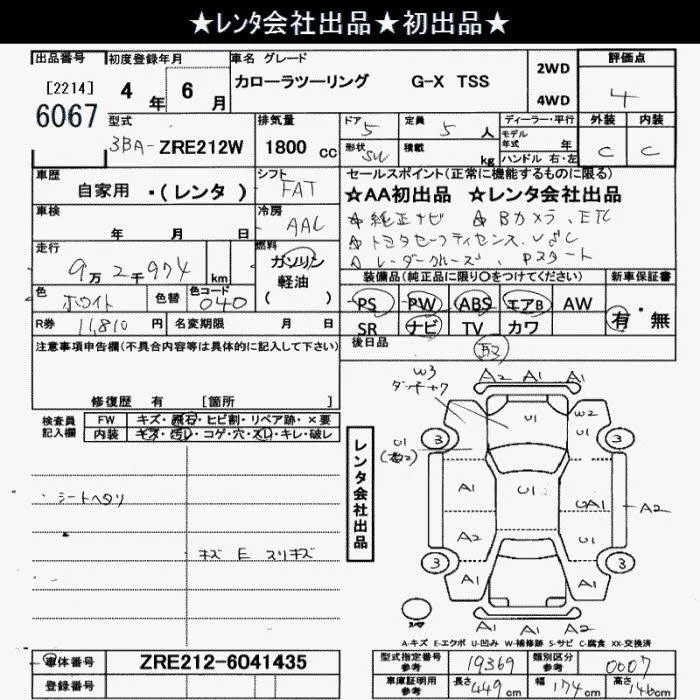 ★レンタ会社出品★初出品★
出品番号 初度登録年月 車名 グレード 評価点
[2214] 6067 4年 6月 カローラツーリング G-X TSS 2WD 4WD 4
型式 排気量 ドア 5 定員 5人 ディーラー・平行 外装 内装
3BA-ZRE212W 1800cc 形状 SW 積載 kg モデル年式 年 ハンドル 右・左 C C
車歴 シフト セールスポイント(正常に機能するものに限る)
自家用・(レンタ) FAT ★AA初出品 ★レンタ会社出品
車検 年 月 日 冷房 AAC ☆純正ナビ ☆Bカメラ、ETC
走行 9万2千974km 燃料 ガソリン 軽油 ( ) ☆トヨタセーフティセンス
☆レーダークルーズ、Pスタート
装備品(純正品に限り○をつけてください) 新車保証書
色 ホワイト 色替 色コード 040 PS PW ABS エアB AW 有・無
R券 11,810円 名変期限 月 日 SR ナビ TV カワ
注意事項申告欄(不具合内容等は具体的に記入して下さい) 後日品 取
修復歴 有 [箇所 ]
検査員記入欄 FW キズ・飛石・ヒビ割・リペア跡・×要
内装 キズ・汚レ・コゲ・穴・スレ・キレ・破レ
レンタ会社出品
シートヘタリ
キズ E スリキズ
W3 A2 A1 A1
U1 W2
U1 3 3
A1 U1 A1
A2 A2 U1
3 3
A1 A1
A2 A1 A1
A-キズ E-エクボ U-凹み W-補修跡 S-サビ C-腐食 XX-交換済
車体番号 ZRE212-6041435 型式指定番号参考 19369 類別区分参考 0007
登録番号 車庫証明用参考 長さ 449cm 幅 174cm 高さ 146cm